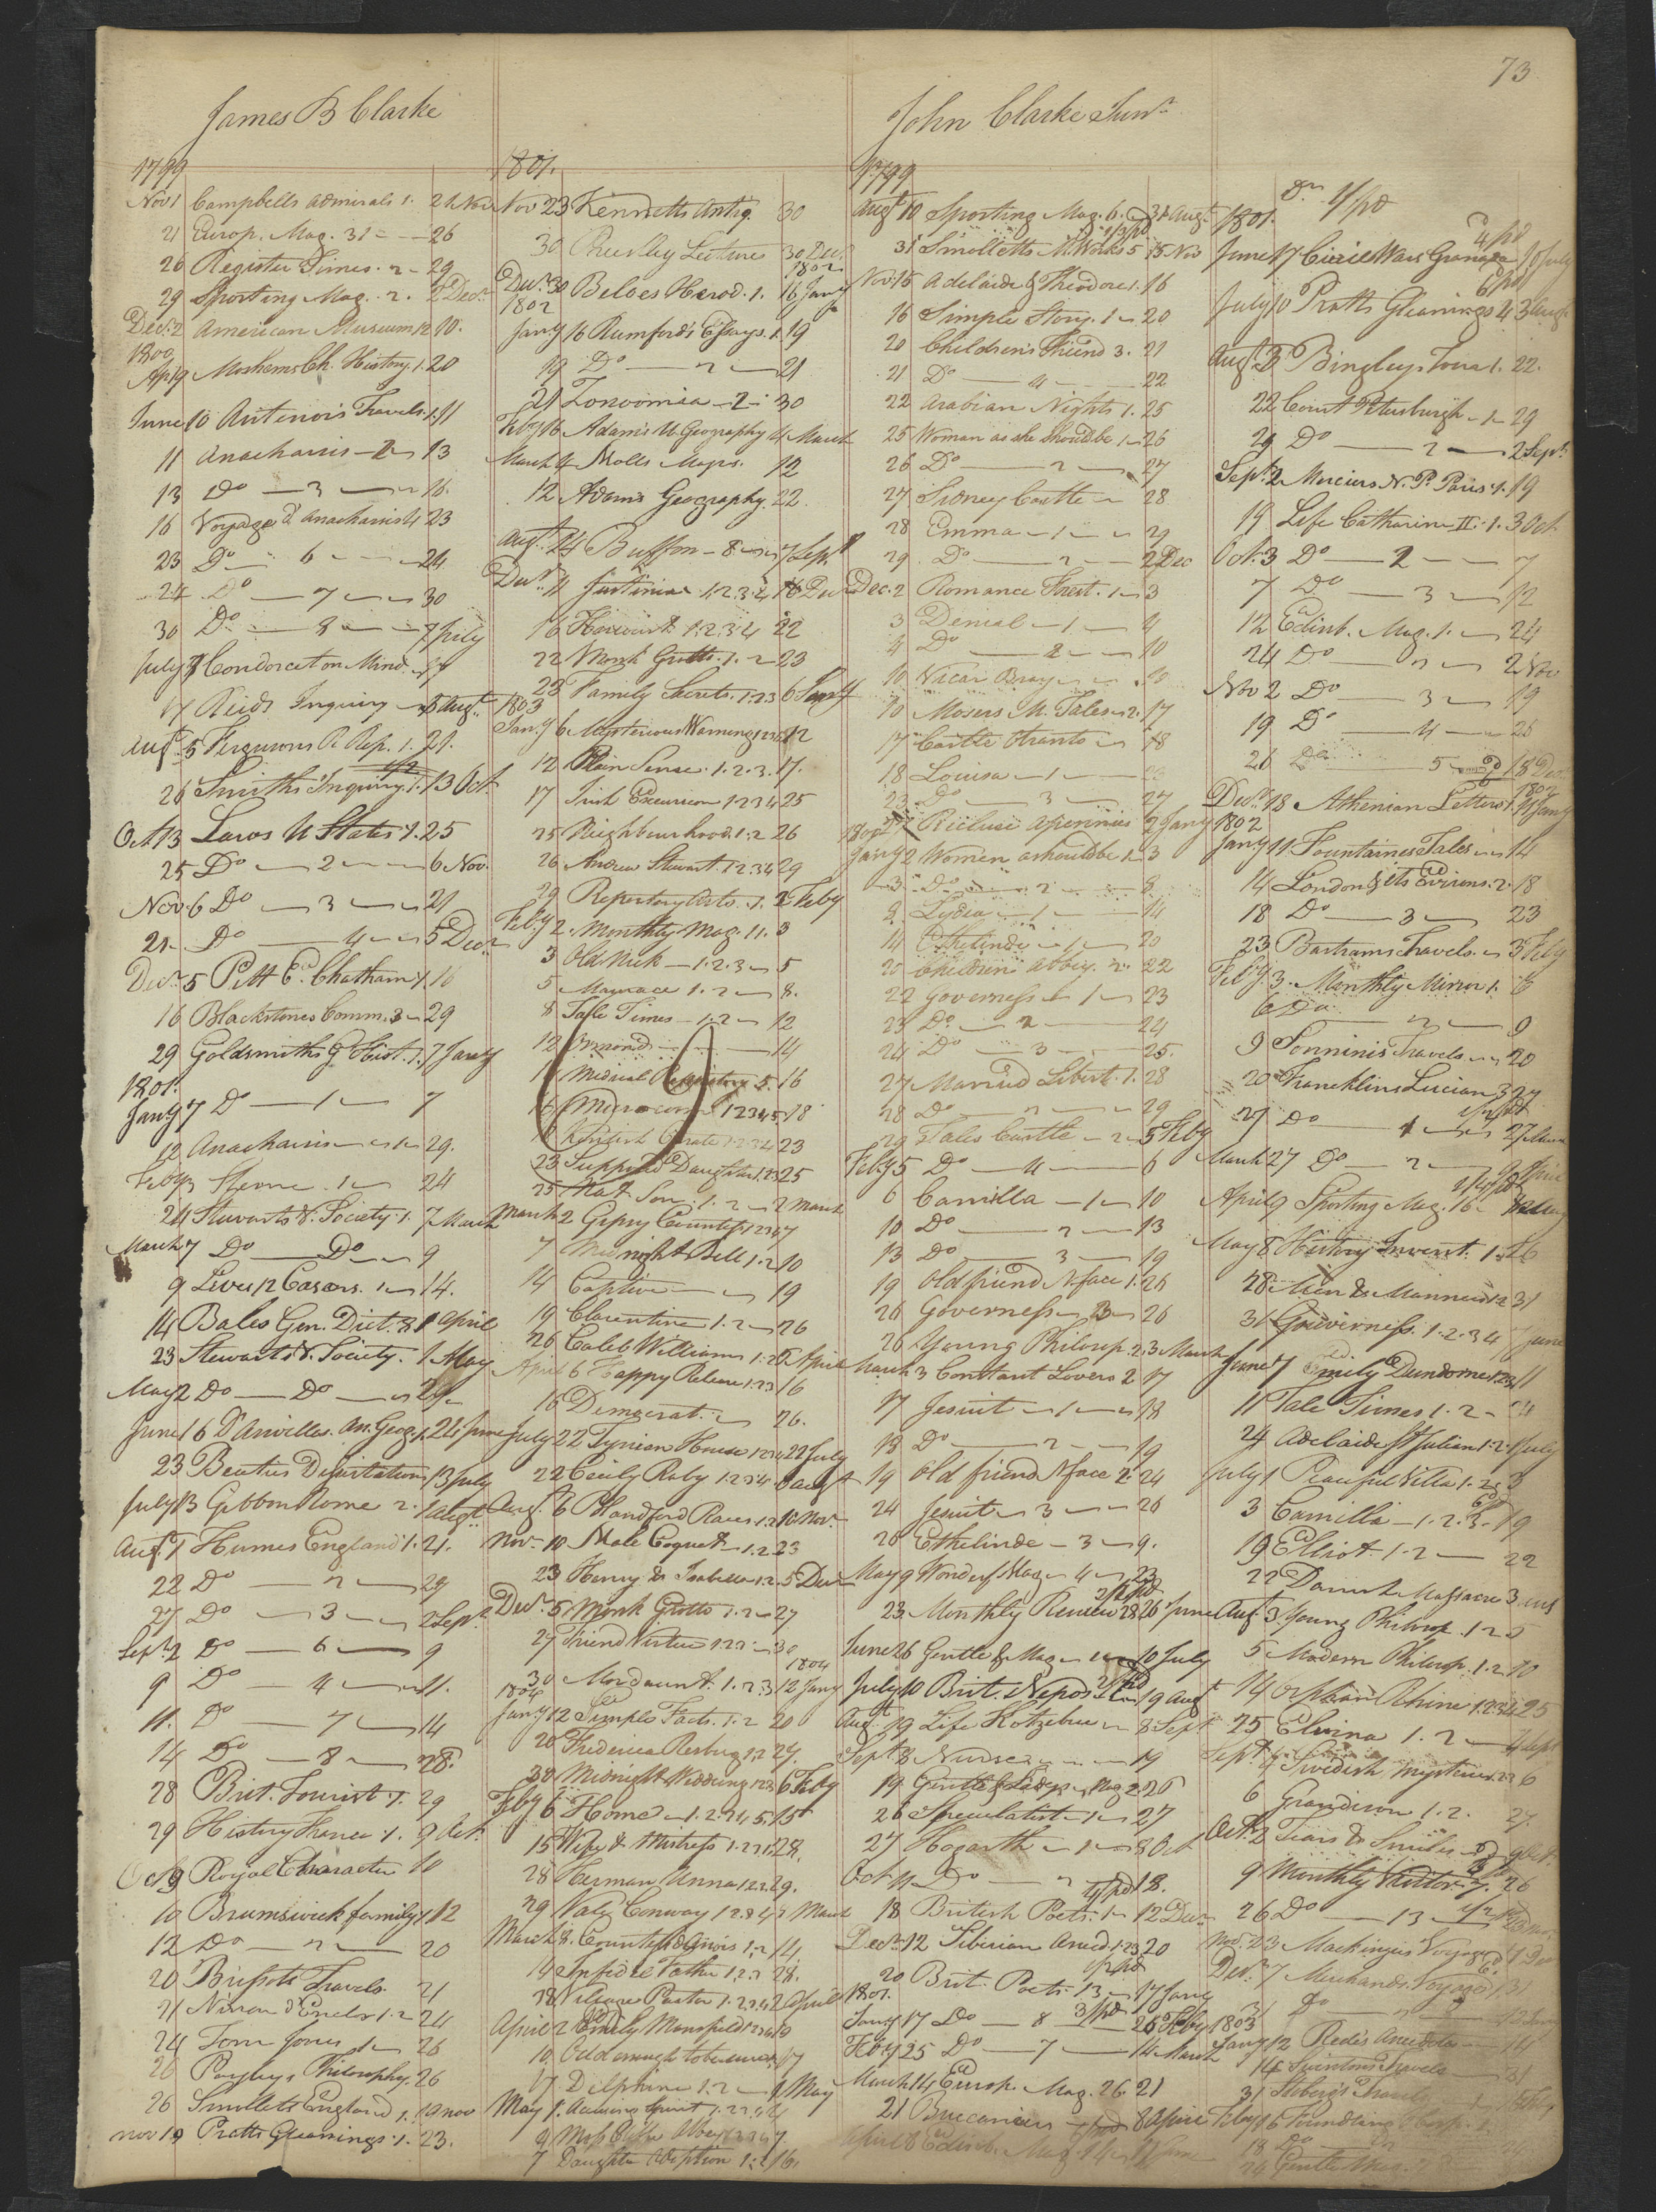 73
James B Clarke
1799
Nov 1 Campbells Admirals 1. 21 Nov
21 Europ. Mag. 31 26
26 Register Times. 2 29
29 Sporting Mag. 2. 2 Decr
Decr. 2 American Museum 12 10.
1800
Ap 19 Moshems Ch. History. 1. 20
June 10 Antenors Travels. 1. 11
11 Anacharsis 2 13
13 Do 3 16.
16 Voyage d'Anacharsis 4 23
23 Do 6 24
24 Do 7 30
30 Do 8 7 July
July 7 Condorcet on Mind 17
17 Reids Inquiry 5 Augt
Augt 5 Fergusons R. Rep. 1. 21.
26 Smiths Inquiry. 1. 13 Oct
Oct 13 Laws U States. 1. 25
25 Do 2 6 Nov.
Nov. 6 Do 3 21
21 Do 4 5 Decr
Decr 5 Pitt E. Chatham 1. 16
16 Blackstones Comm. 3 29
29 Goldsmiths G Hist. 1. 7 Jany
1801.
Jany 7 Do 1 7
12 Anacharsis 1 29.
Feby Sterne. 1 24
24 Stewarts V. Society. 1. 7 March
March 7 Do Do 9
9 Lives 12 Caesars. 1 14.
14 Bales Gen. Dict. 8 1 April
23 Stewarts V. Society. 1 May
May 2 Do Do
June 16 D'Anvilles An. Geog. 1. 21 June
23 Beatties Dissertations 13 July
July 13 Gibbon Rome 2. 1 Augt
Augt 1 Humes England 1. 21.
22 Do 2 27
27 Do 3 2 Sept.
Sept. 2 Do 6 9
9 Do 4 11.
11. Do 7 14
14 Do 8 28.
28 Brit. Tourist. 1. 29
29 History France. 1. 9 Oct.
Oct 9 Royal Character 10
10 Brunswick family 1 12
12 Do 2 20
20 Brissots Travels. 21
21 Ninon d'Enclos 1. 2 24
24 Tom Jones 1 26
26 Payleys Philosophy. 26
26 Smollets England 1. 19 Nov
Nov 19 Pratts Gleanings. 1. 23.
1801.
Nov 23 Kennetts Antiq. 30
30 Priestley Lectures 30 Decr
1802
Decr. 30 Beloes Herod. 1. 16 Jany
1802
Jany 16 Rumford's Essays. 1. 19
19 Do 2 21
21 Zonoomia 2 30
Feby 16 Adams U Geography 4 March
March 4 Molls Maps. 12
12 Adams Geography. 22.
Augt. 24 Buffon 8 7 Sept
Decr. 11 Justinia 1. 2. 3. 4 16 Decr
16 Harcourt 1. 2. 3 4 22
22 Monk Grotto. 1. 2 23
23 Family Secrets. 1. 2 3 6 Jany
1803
Jany 6 Mysterious Warning 1 2 3 4 12
12 Plain Sense. 1. 2. 3. 17.
17 Irish Excursion 1 2 3 4 25
25 Neighbourhood. 1. 2 26
26 Andrew Stewart. 1 2. 3 4 29
29 Repertory Arts. 1. 2 Feby
Feby 2. Monthly Mag. 11. 3
3 Old Nick 1. 2. 3 5
5 1. 2 8.
8 Tale Times 1. 2 12
12 14
Medical Repository. 5. 16
16 Microcosm 1 2 3 4 5 18
Kentish Curate 1. 2 3 4 23
23 Supposed Daughter 1. 2 3 25
25 Nat. Son. 1. 2 2 March
March 2 Gipsy Countess 1 2 3 4 7
7 Midnight Bell 1. 2 10
14 Captive 19
19 Clarentine 1. 2 26
26 Caleb Williams 1. 2 6 April
April 6 Happy Release 1. 2 3 16
16 Democrat. 26.
July 22 Tynian House 1. 2 3 4 22 July
22 Cecily Raby 1. 2 3 4 6 Augt
Augt. 6 Blandford Races 1. 2 10 Novr
Novr 10 Male Coquet 1. 2 23
23 Henry & Isabella 1. 2. 5 Decr
Decr. 5 Monk Grotto 1. 2 27
27 Friend Virtue 1. 2 3 30
1804
30 Mordaunt. 1. 2. 3 12 Jany
1804
Jany 12 Simple Facts. 1. 2 20
20 Frederica Risburg 1. 2 27.
30 Midnight Wedding 1 2 3 6 Feby
Feby 6 Home 1. 2 3 4 5 15
15 Wife & Mistress 1. 2 3 4 28.
28 Herman Unna 1 2 3. 29.
29 Valy Conway 1 2. 3 4 March
March 8. Countess 1. 2 14
14 Infidel Father 1. 2. 3 28.
28 Village Pastor 1. 2. 3. 4 2 April
April 2 Emily Mansfield 1 2 3 4 10
10. Odd enough to be sure 1 2 17
17 Delphine 1. 2 1 May
May 1.
9 Miss
7 Daughter Adoption 1. 2 16.
John Clarke Junr.
1799
Augt 10 Sporting Mag. 6. 31 Augt
31 Smolletts M. Works 5 15 Nov
Nov. 15 Adelaide & Theodore 1. 16
16 Simple Story. 1 20
20 Childrens Friend 3. 21
21 Do 4 22
22 Arabian Nights 1. 25
25 Woman as she should be 1 26
26 Do 2 27
27 Sidney Castle 28
28 Emma 1 29
29 Do 2 2 Dec
Dec. 2 Romance Forest. 1 3
3 Denial 1 4
4 Do 2 10
10 Vicar Bray 10
10 Mosers M. Tales 2. 17
17 Castle Otranto 18
18 Louisa 1 23
23 Do 3 27
1800 27 Recluse Apennines 2 Jany
Jany 2 Women as should be 1 3
3 Do 2 8
8 Lydia 1 14
14 Ethelinde 1 20
20 Children Abbey. 2. 22
22 Governess 1 23
23 Do 2 24
24 Do 3 25.
27 Married Libert. 1. 28
28 Do 2 29
29 Tales Castle 2 5 Feby
Feby 5 Do 4 6
6 Camilla 1 10
10 Do 2 13
13 Do 3 19
19 Old friend N face 1. 26
26 Governess 3 26
26 Young Philosop. 2. 3 March
March 3 Constant Lovers 2 17
17 Jesuit 1 18
18 Do 2 19
19 Old friend N face 2. 24
24 Jesuit 3 26
26 Ethelinde 3 9.
May 9 Wonderf Mag 4 23
23. Monthly Review 28 26 June
June 26 Gentle. Mag 1 10 July
July 10 Brit. Nepos 19 Augt
Augt 19 Life Kotzebue 8 Sept
Sept. 8 19
19. Gentle & Ladys Mag 2 26
26 Speculatist 1 27
27 Hogarth 1 8 Oct
Oct. 11 Do 2 18.
18 British Poets. 1 12 Decr
Decr. 12 Siberian Anecd. 1. 2 3 20
20 Brit. Poets. 13 17 Jany
1801.
Jany 17 Do 8 25 Feby
Feby 25 Do 7 14 March
March 14 Europ. Mag. 26 21
21 Buccaniers 8 April
April 8 Edinb. Mag 14
1801.
June 17 Civil Wars Granada 10 July
July 10 Pratts Gleanings 4 3 Augt
Augt. 3 Bingleys Tour 1. 22.
22 Court Petersburgh 1 29
29 Do 2 2 Sept.
Sept. 2 Merciers N. P. Paris. 1. 19
19 Life Catharine II. 1. 3 Oct.
Oct. 3 Do 2 7
7 Do 3 12
12 Edinb. Mag. 1. 24
24 Do 2 2 Nov
Nov 2 Do 3 19
19 Do 4 26
26 Do 5 18 Dec
1802
Decr. 18 Athenian Letters 1. 11 Jany
1802
Jany 11 Fountaines Tales 14
14 London & its Environs. 2. 18
18 Do 3 23
23 Bartrams Travels. 3 Feby
Feby. 3. Monthly Mirror 1. 6
6 Do 2 9
9 Sonninis Travels 20
20 Francklins Lucian 3 27
27 Do 1
March 27 Do 2 9 April
April 9 Sporting Mag. 16
May 8 History Invent. 1 26
28 Men & Manners 1 2 31
31 Gouverness. 1. 2. 3 4 7 June
June 7 Emily Dundorne 1. 2 3 11
11 Tale Times 1. 2 24
24 Adelaide St Julian 1. 2. 1 July
July 1 Peaceful Villa 1. 2 3
3 Camilla 1. 2. 3. 19
19 Elliot. 1. 2 22
22 Danish Massacre 3 Augt
Augt. 3 Young Philosop. 1 2 5
5 Modern Philosop. 1. 2 10
14 Orphan Rhine 1. 2. 3 4 25
25 Elvina 1. 2 4 Sept
Sept. 4 Swedish Mysteries 1 2 3 6
6 Grandison 1. 2. 27.
Oct. 2 Tears & Smiles 9 Oct.
9 Monthly Visitor. 7. 26
26 Do 13
Nov. 23 Mackinzies Voyages 7 Dec
Decr. 7 Marchands Voyage 31
31 Do 2 12 Jany
1803
Jany 12 Redes Anecdotes 14
14 Swintons Travels 31
31 Travels
Feby 16 Foundling 1.
18 Do
24 Gentle Mag.